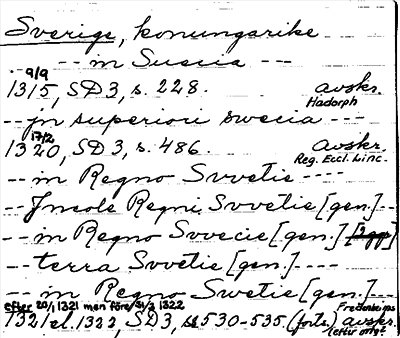 Sverige, konungarike
-- -- in Suecia -- --
9/9
1315, SD 3, s. 228. avskr.
Hadorph
-- jn superiori swecia -- --
17/2
1320, SD 3, s. 486. avskr.
Reg. Eccl. Linc.
-- in Regno Svvetie -- -- --
-- Jncole Regni Svvetie [gen.] --
-- in Regno Svvecie [gen.]
-- terra Svvetie [gen.] -- --
-- in Regno Swetie [gen.] --
efter 20/1 1321 men före 31/3 1322
1321 el. 1322, SD 3, s. 530-535. (forts.) avskr.
(efter orig.